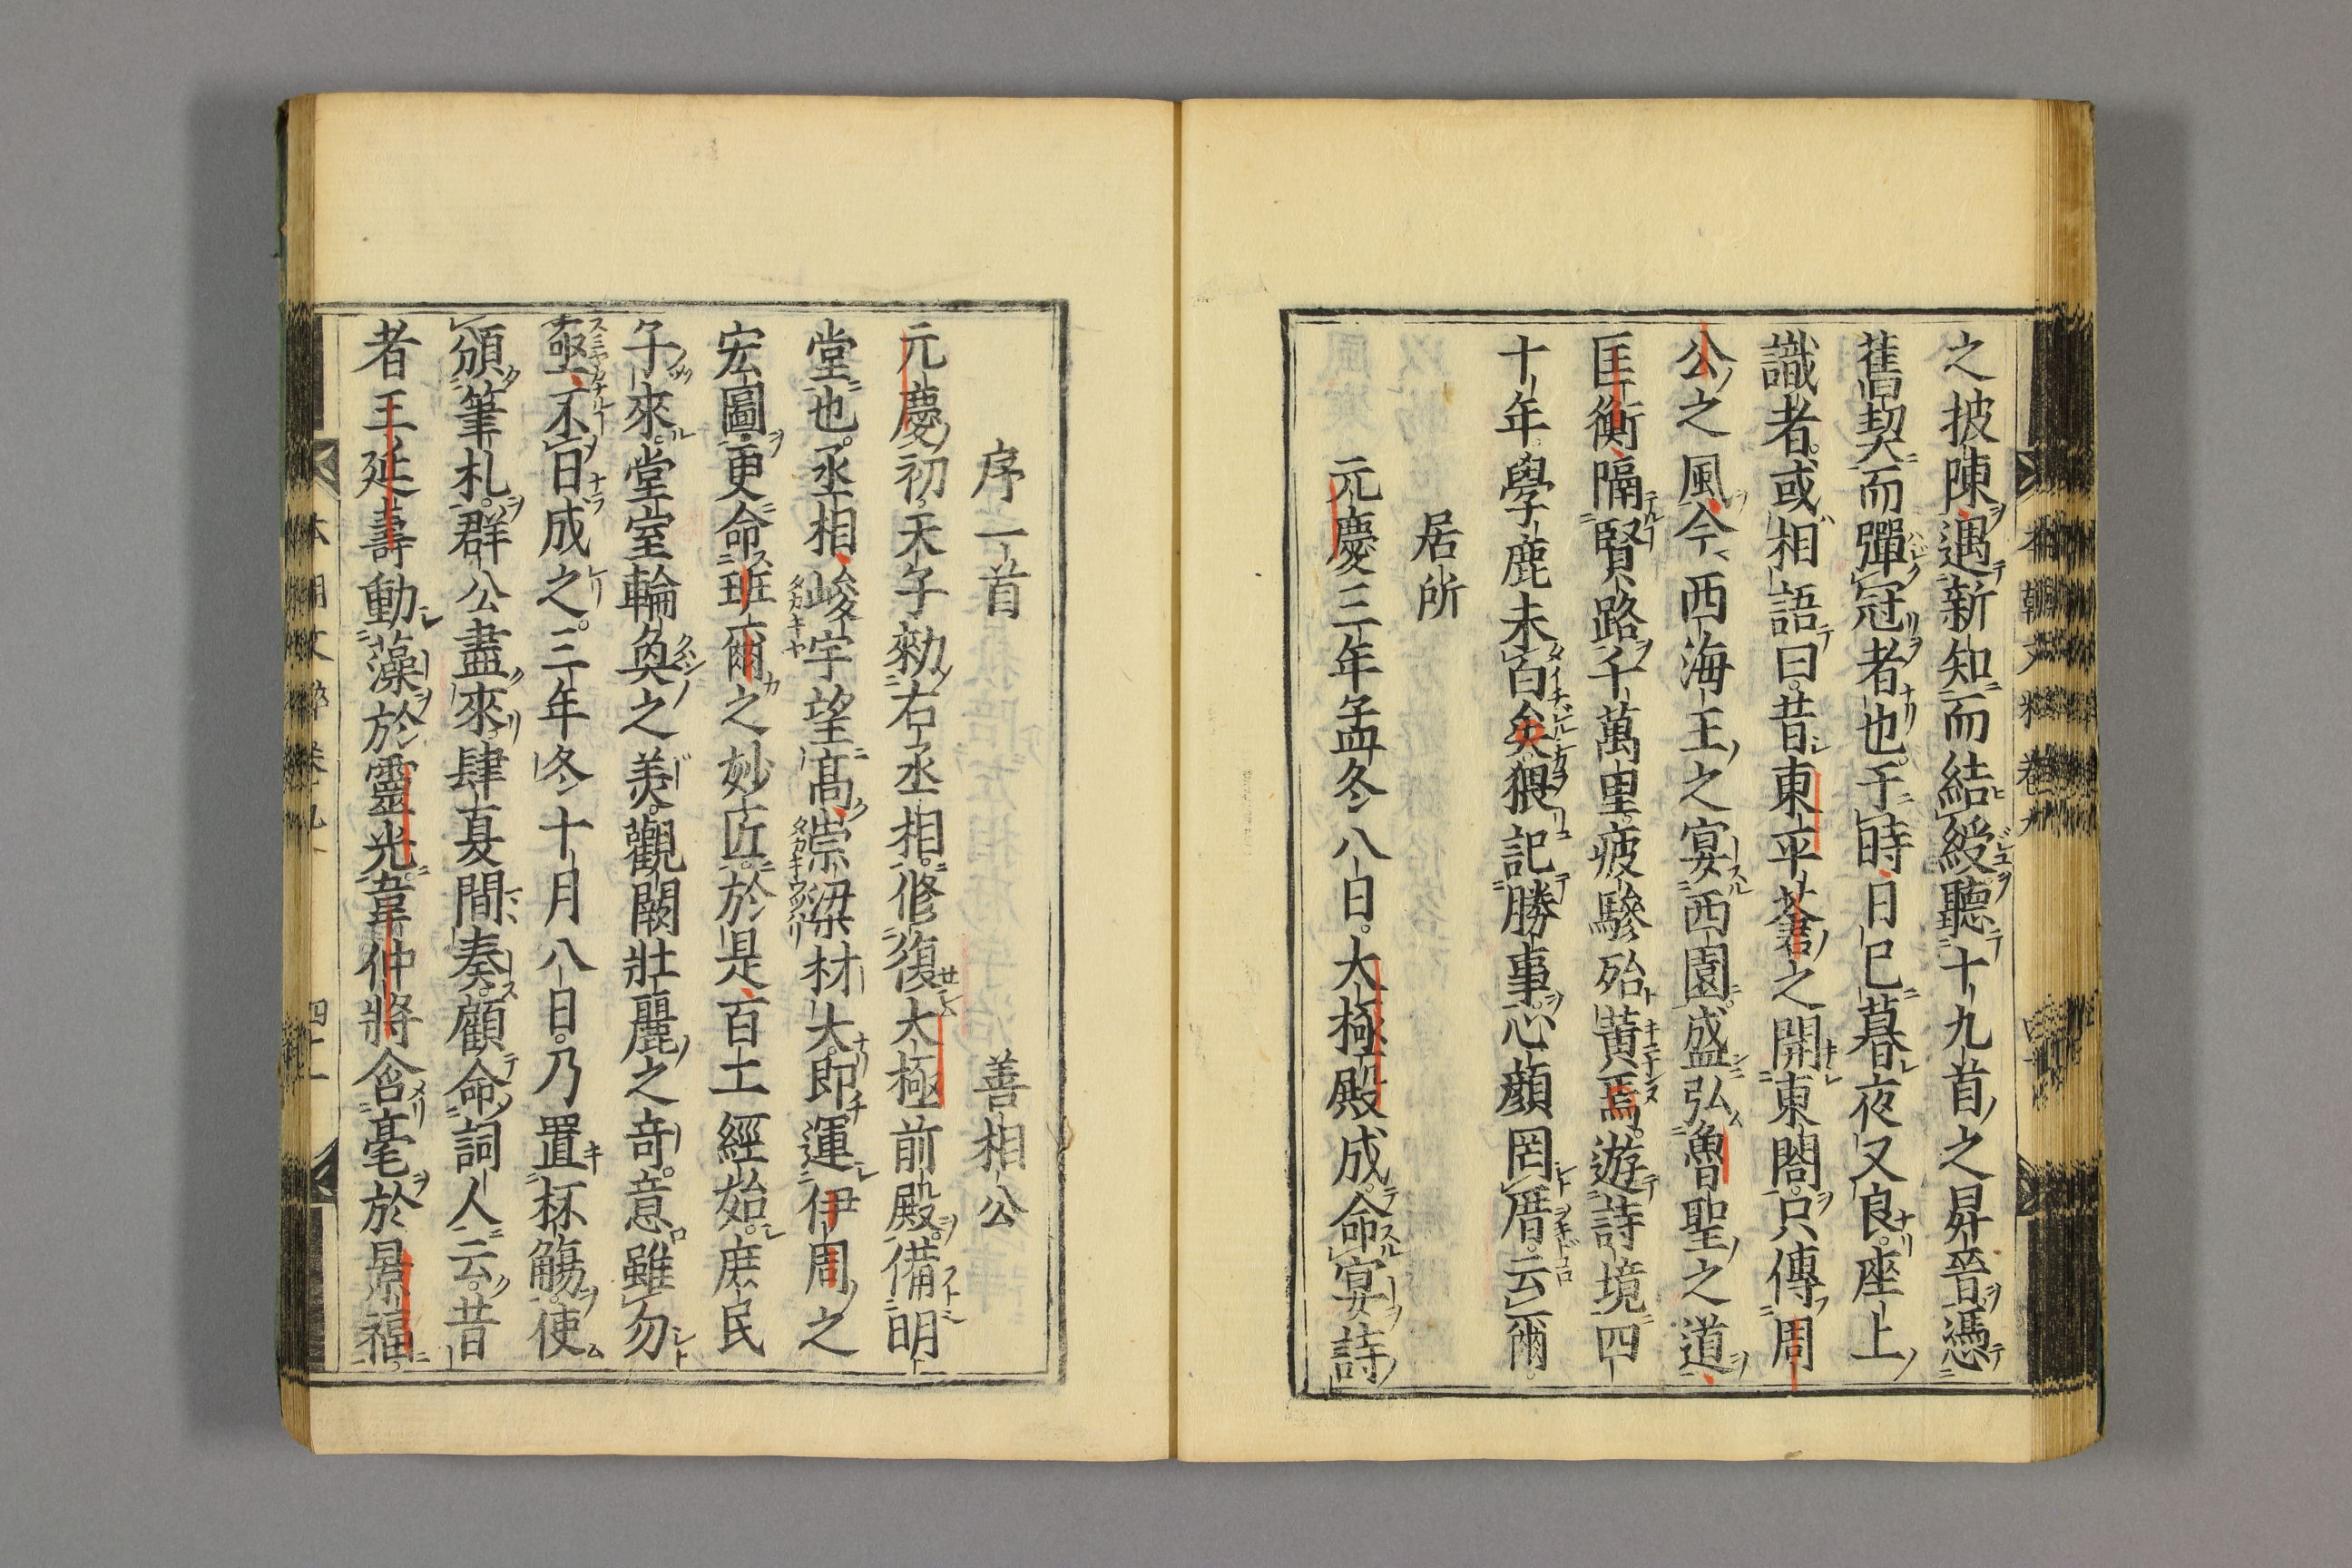 之披陳遇新知而結綬聽十九首之昇晉憑
舊契而彈冠者也于時日已暮夜又良座上
識者或相語曰昔東平蒼之開東閤只傳周
公之風今西海王之宴西園盛弘魯聖之道
匡衡隔賢路千萬里疲驂殆黃焉遊詩境四
十年學鹿未百矣猥記勝事心顔罔厝云爾
居所
元慶三年孟冬八日大極殿成命宴詩
序一首 善相公
元慶初天子勑右丞相修復大極前殿備明
堂也丞相峻宇望高崇梁材大即運伊周之
宏圖更命班爾之妙匠於是百土經始庶民
子來堂室輪奐之美觀闕壯麗之奇意雖勿
亟不日成之三年冬十月八日乃置杯觴使
頒筆札群公盡來肆夏間奏顧命詞人云昔
者王延壽動藻於靈光韋仲將含毫於景福